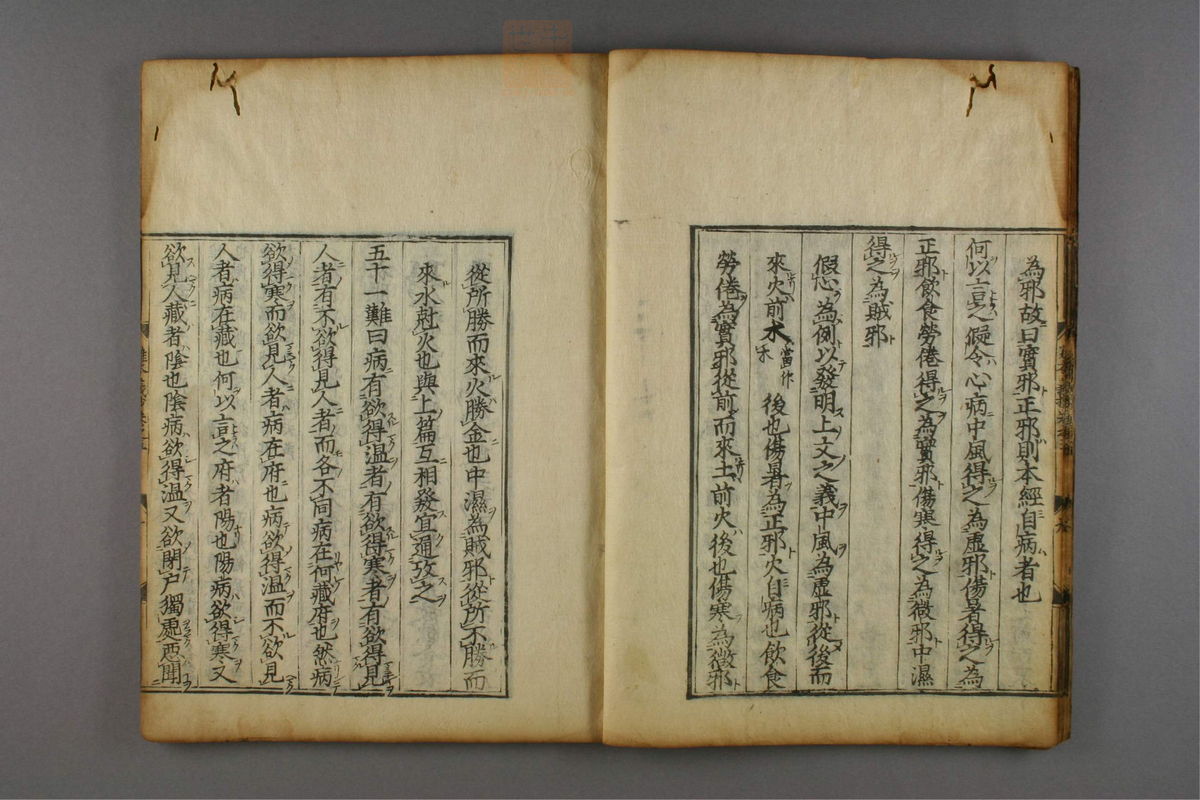 為邪故曰實邪正邪則本經自病者也
何以言之假令心病中風得之為虛邪傷暑得之為
正邪飲食勞倦得之為實邪傷寒得之為微邪中濕
得之為賊邪
假心為例以發明上文之義中風為虛邪從後而
來火前木當作木後也傷暑為正邪火自病也飲食
勞倦為實邪從前而來土前火後也傷寒為微邪
從所勝而來火勝金也中濕為賊邪從所不勝而
來水尅火也與上篇互相發宜通攷之
五十一難曰病有欲得温者有欲得寒者有欲得見
人者有不欲得見人者而各不同病在何藏府也然病
欲得寒而欲見人者病在府也病欲得温而不欲見
人者病在藏也何以言之府者陽也陽病欲得寒又
欲見人藏者陰也陰病欲得温又欲閉户獨處惡聞